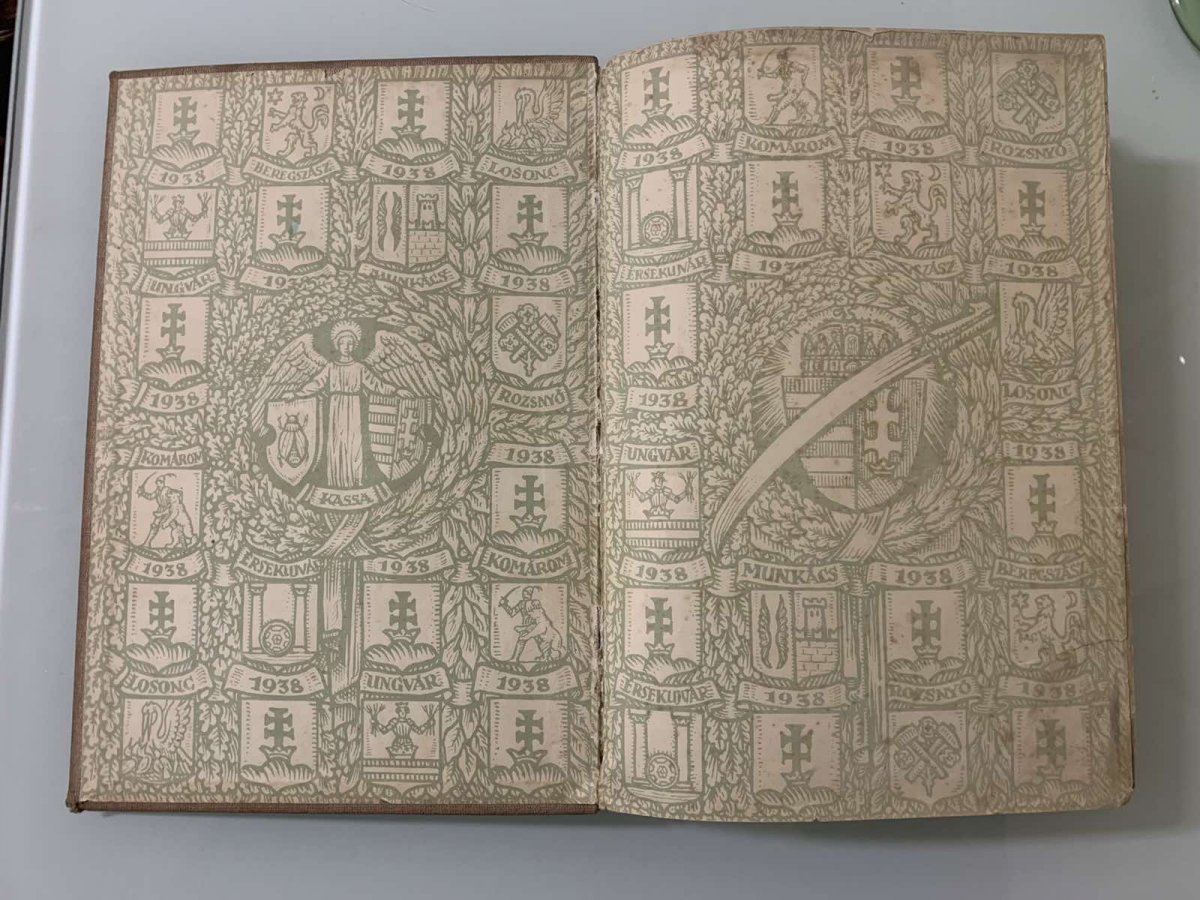 1938 BEREGSZÁSZ 1938 LOSONC
UNGVÁR 1938 MUNKÁCS 1938
1938 ROZSNYÓ
KASSA
KOMÁROM 1938
1938 ÉRSEKUJVÁR 1938 KOMÁROM
LOSONC 1938 UNGVÁR 1938
1938 KOMÁROM 1938 ROZSNYÓ
ÉRSEKUJVÁR 1938
1938 LOSONC
UNGVÁR 1938
1938 MUNKÁCS 1938 BEREGSZÁSZ
ÉRSEKUJVÁR 1938 ROZSNYÓ 1938